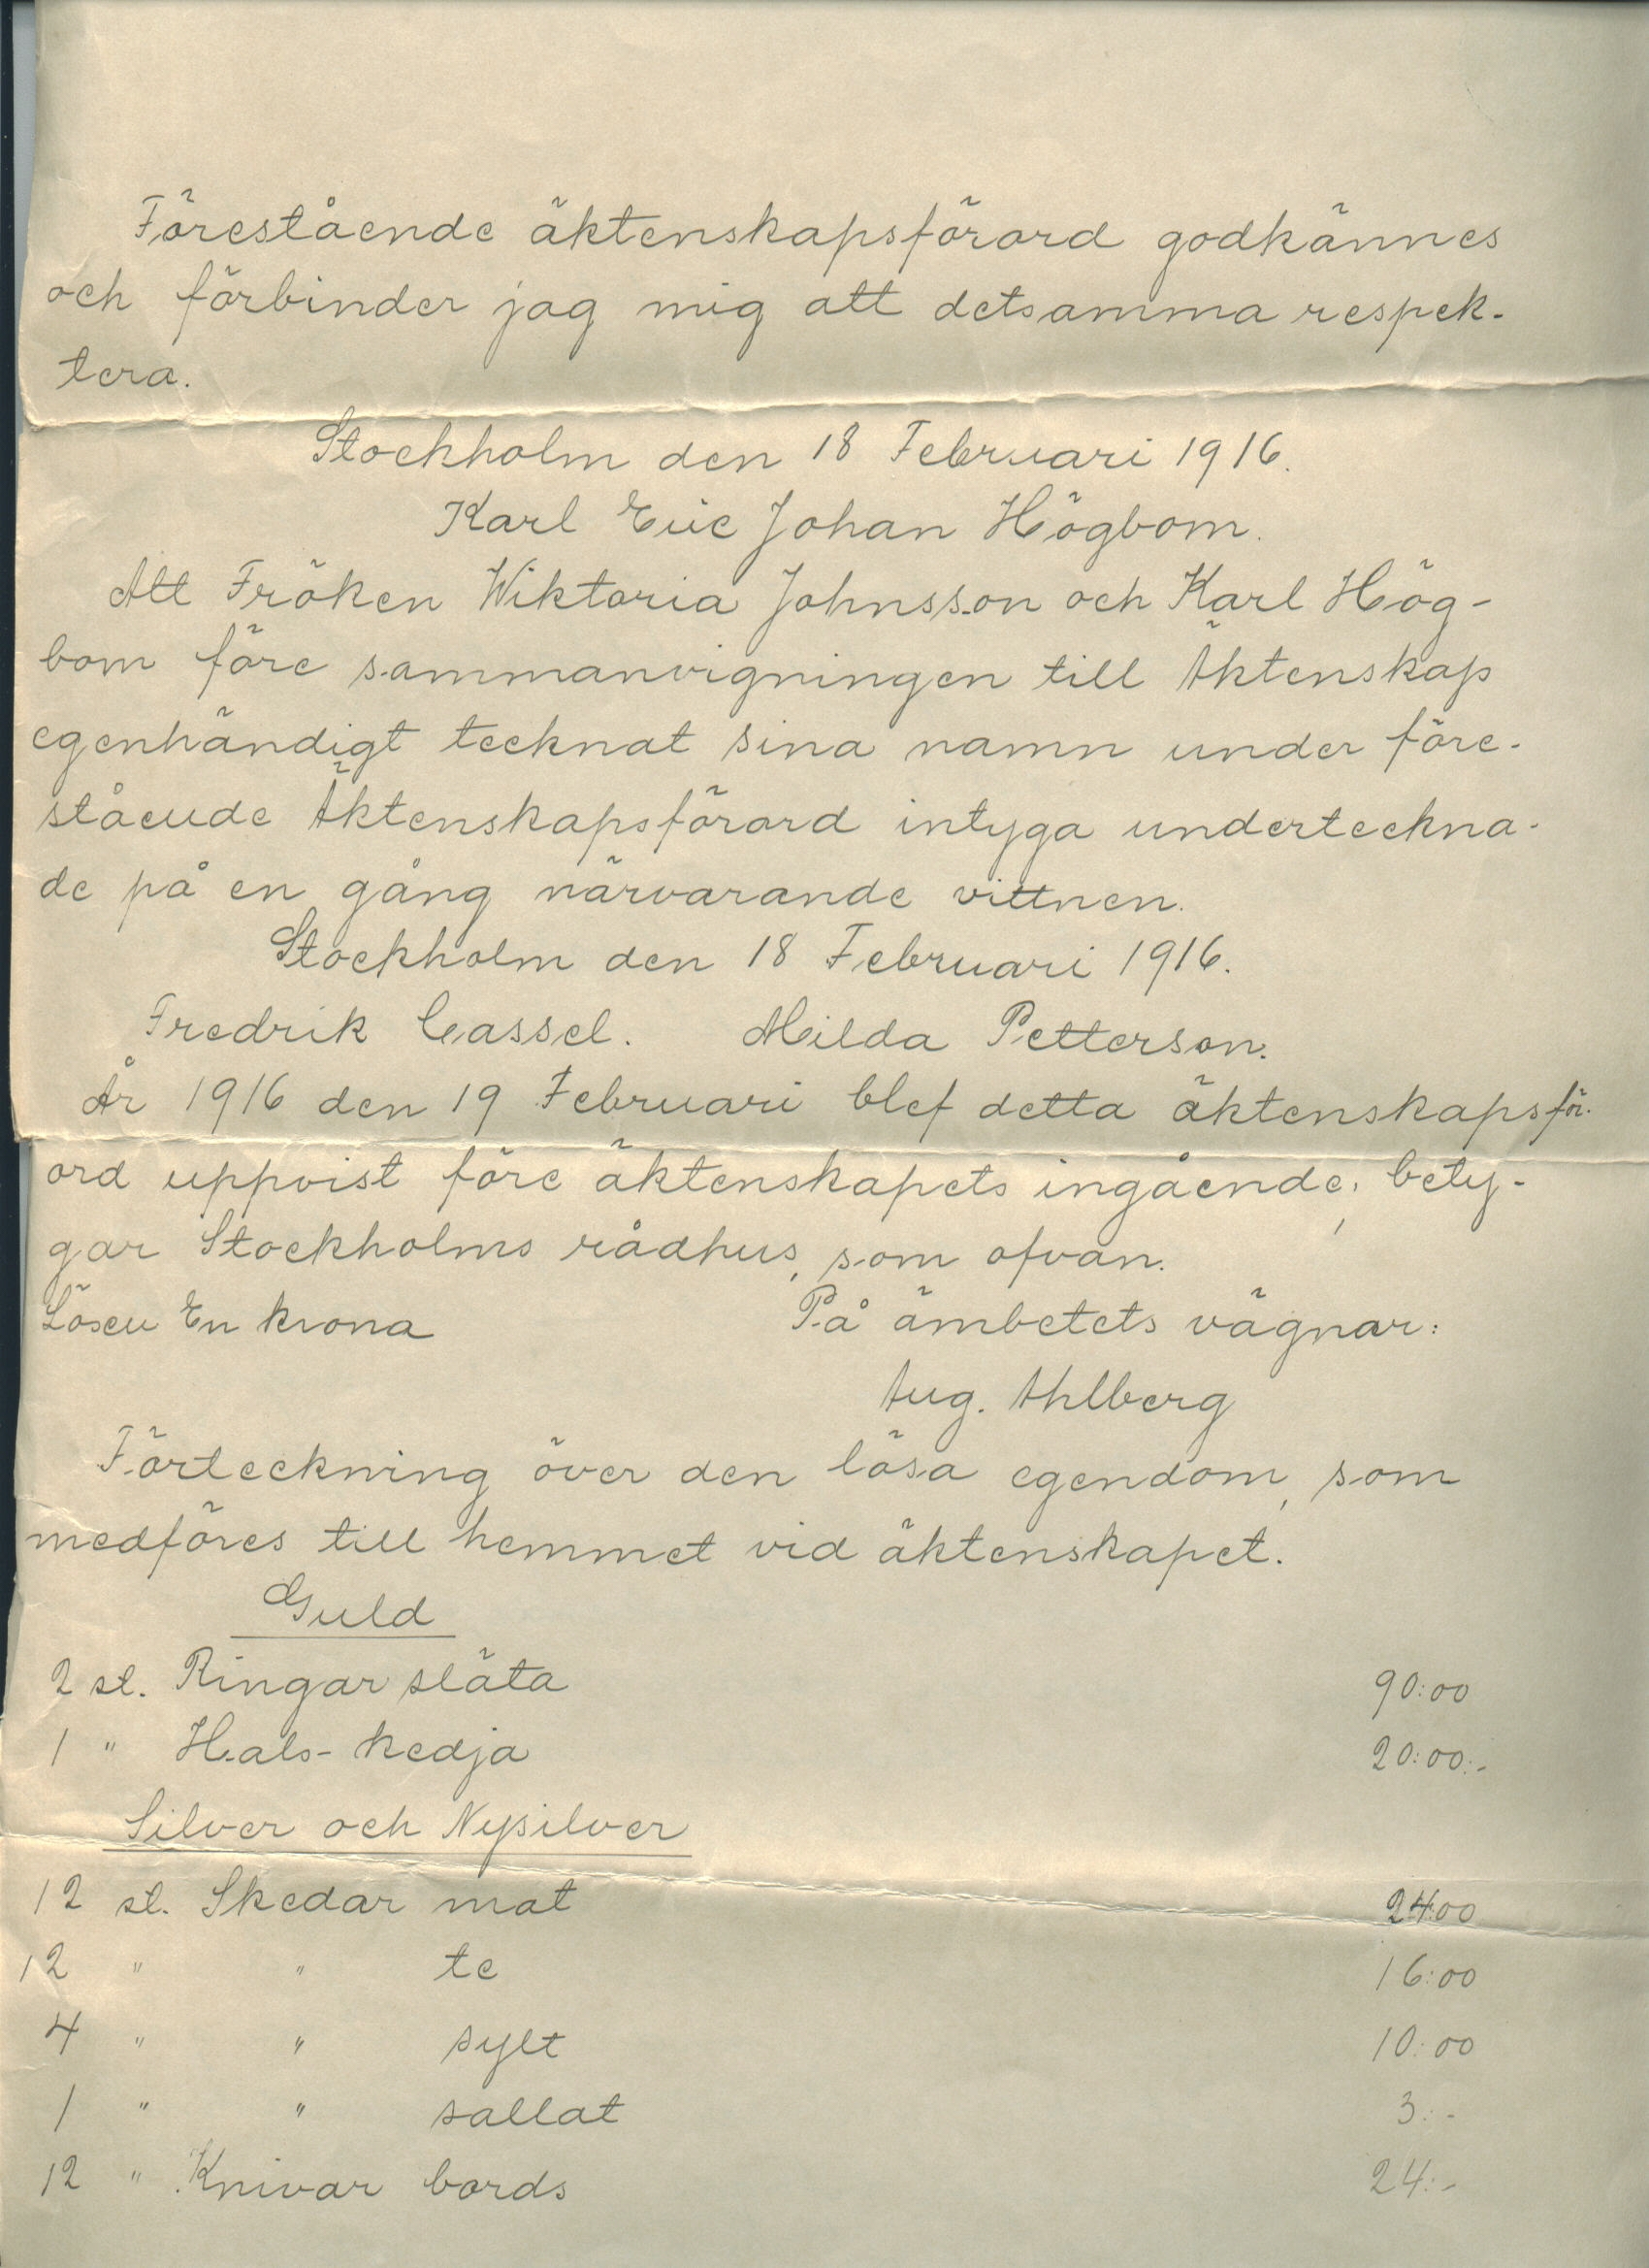 Förestående äktenskapsförord godkännes
och förbinder jag mig att detsamma respek-
tera.
Stockholm den 18 Februari 1916.
Karl Eric Johan Högbom.
Att Fröken Wiktoria Johnsson och Karl Hög-
bom före sammanvigningen till Äktenskap
egenhändigt tecknat sina namn under före-
stående Äktenskapsförord intyga underteckna-
de på en gång närvarande vittnen.
Stockholm den 18 Februari 1916.
Fredrik Cassel. Milda Petterson.
År 1916 den 19 Februari blef detta äktenskapsför-
ord uppvist före äktenskapets ingående, bety-
gar Stockholms rådhus, som ofvan.
Lösen En krona På ämbetets vägnar:
Aug. Ahlberg
Förteckning över den lösa egendom, som
medföres till hemmet vid äktenskapet.
Guld
2 st. Ringar släta 90:00
1 " Hals-kedja 20:00:-
Silver och Nysilver
12 st. Skedar mat 24:00
12 " " te 16:00
4 " " sylt 10:00
1 " " sallat 3:-
12 " Knivar bords 24:-